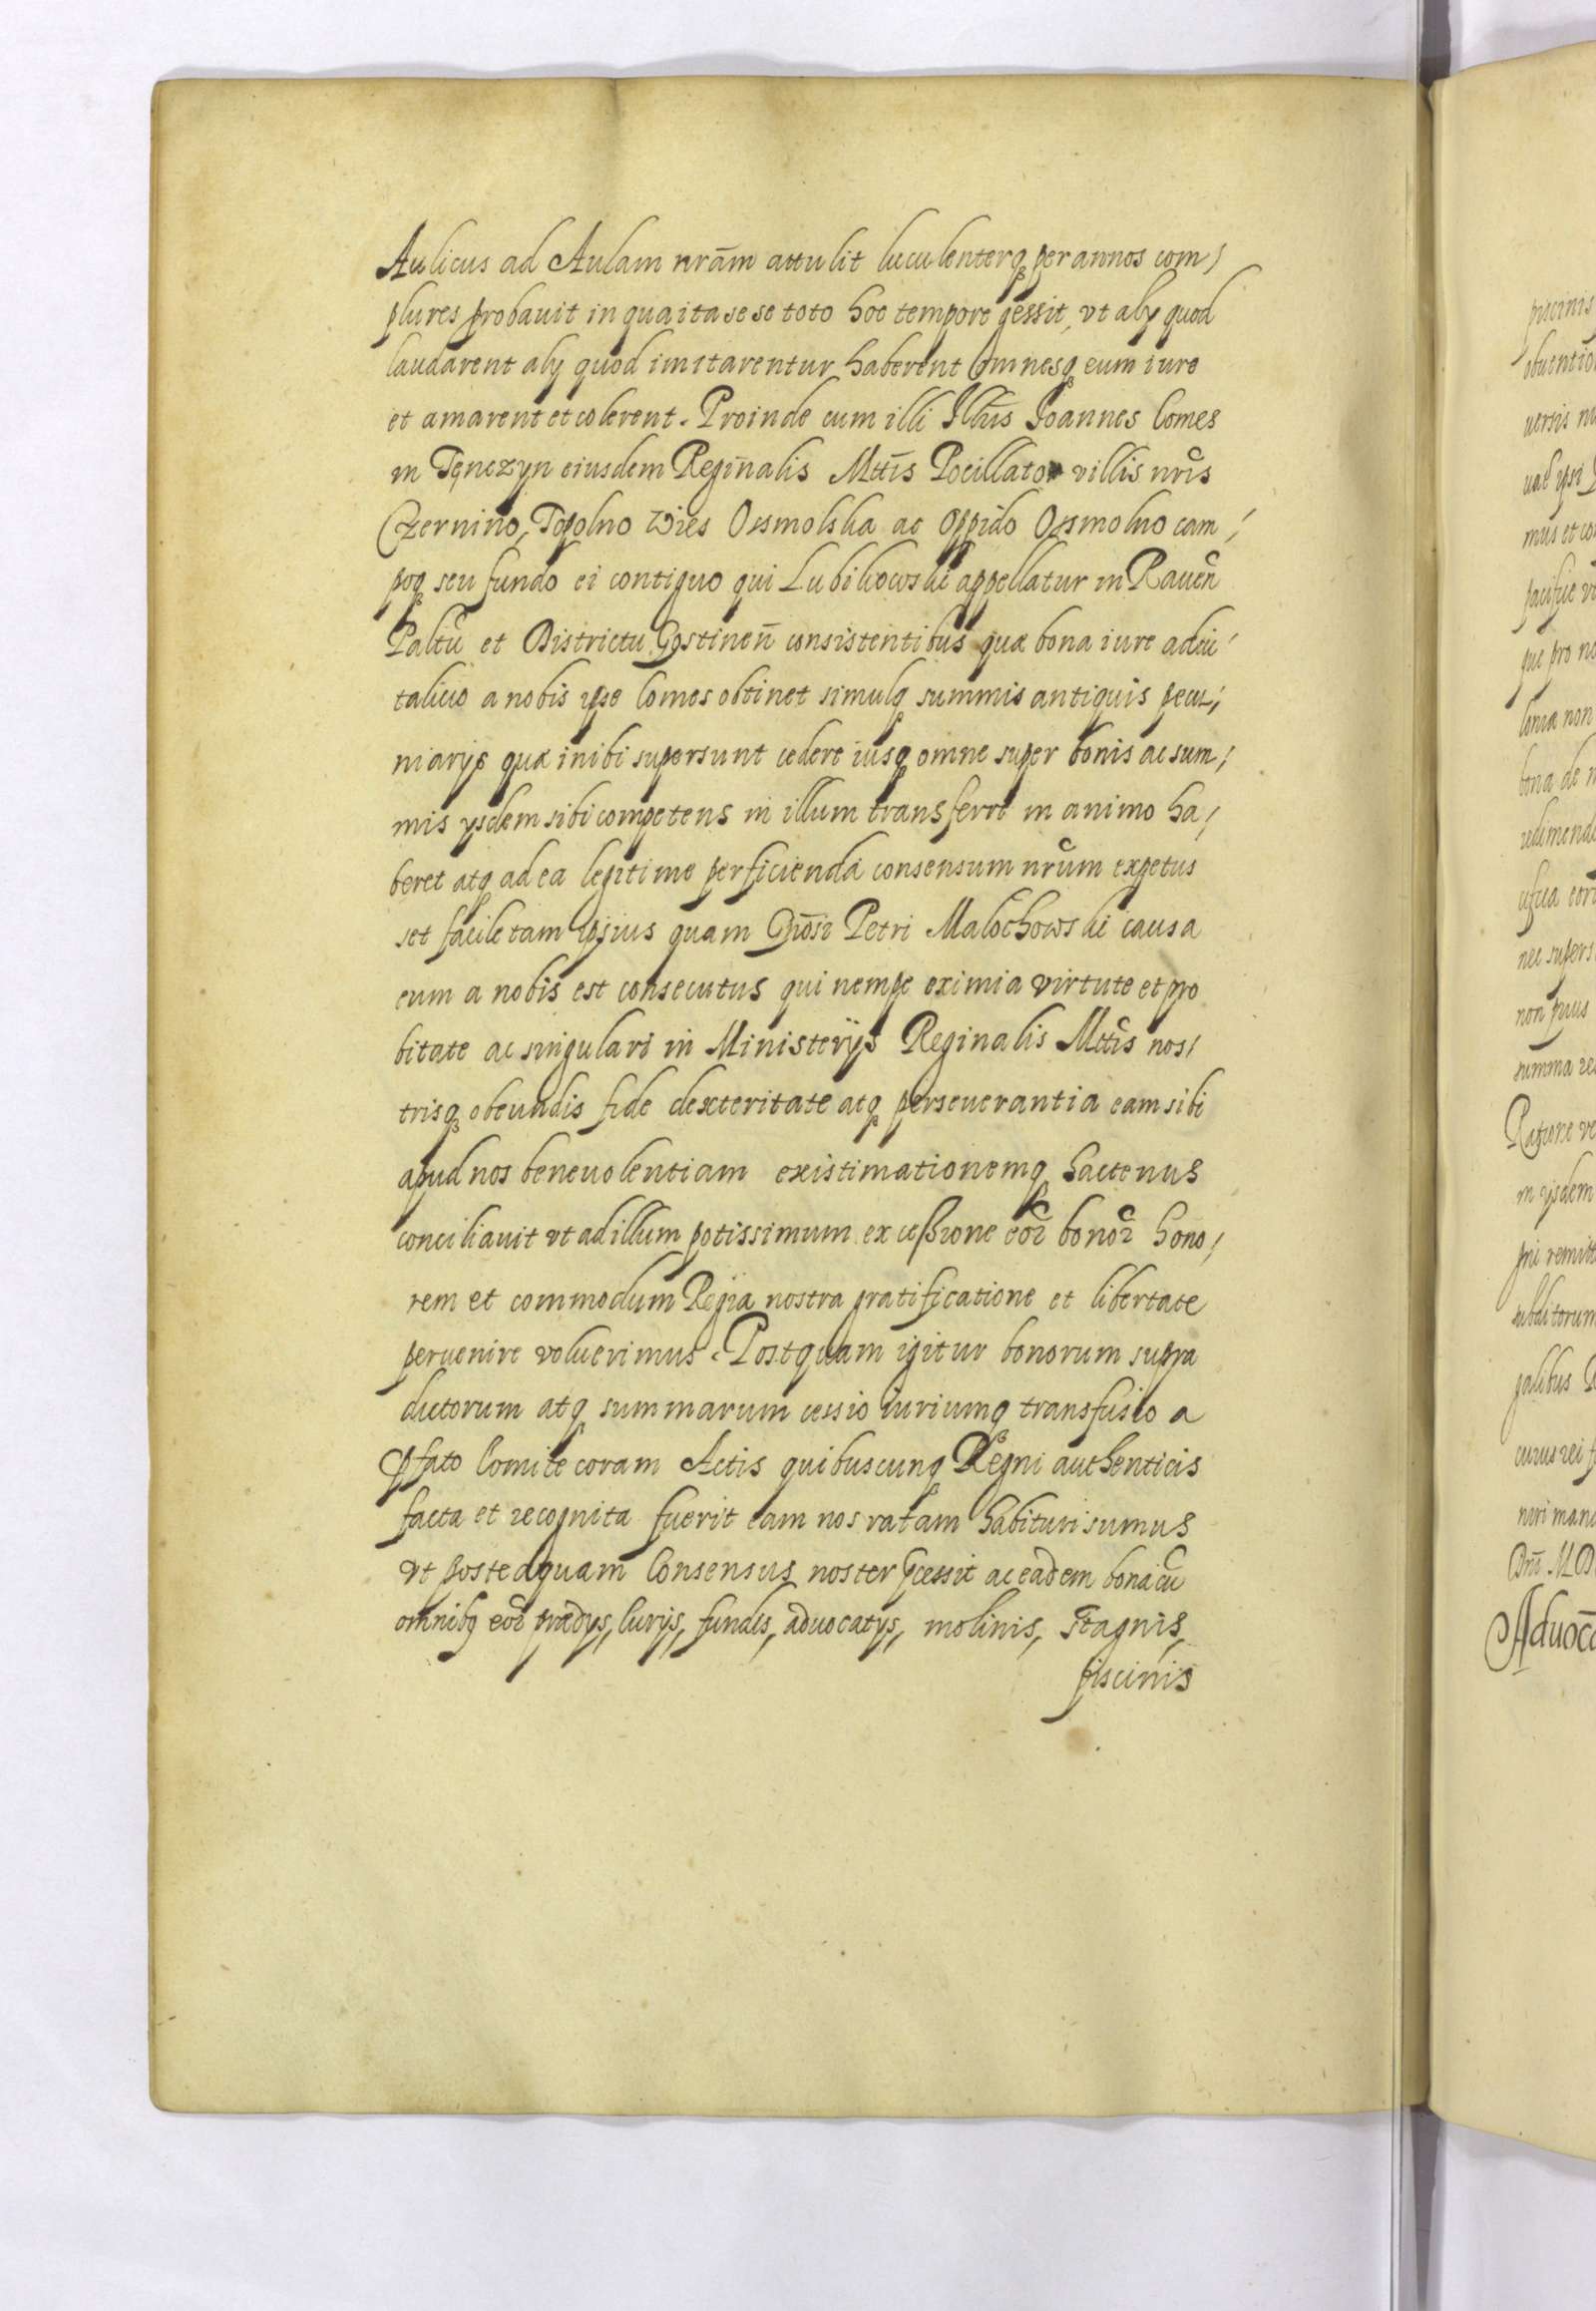 Aulicus ad Aulam nrãm attulit luculenterq per annos com/
plures probauit in qua ita sese toto hoc tempore gessit, vt alÿ quod
laudarent alÿ quod imitarentur haberent omnesq eum iure
et amarent et colerent. Proinde cum illi Illris Joannes Comes
in Tęnczyn eiusdem Reginalis Mttis Pocillator villis nris
Czernino, Topolno Wies Ossmolska ac Oppido Ossmolno cam/
poq seu fundo ei contiguo qui Lubikowski appellatur in Raven
Paltu et Districtu Gostinen consistentibus quæ bona iure aduı/
talicio a nobis ipse Comes obtinet simulq summis antiquis pecu/
niarÿs quæ inibi supersunt cedere iusq omne super bonis ac sum/
mis ÿsdem sibi competens in illum transferre in animo ha/
beret atq ad ea legitime perficienda consensum nrum expetus
set facile tam ipsius quam Gnosi Petri Malochowski causa
eum a nobis est consecutus qui nempe eximia virtute et pro
bitate ac singulari in Ministerÿs Reginalis Mttis nos/
trisq obeundis fide dexteritate atq perseuerantia eam sibi
apud nos beneuolentiam existimationemq hactenus
conciliauit vt ad illum potissimum ex cessione eor bonor hono/
rem et commodum Regia nostra gratificatione et libertate
peruenire voluerimus. Postquam igitur bonorum supra
dictorum atq summarum cessio iuriumq transfusio a
pfato Comite coram Actis quibuscunq Regni authenticis
facta et recognita fuerit eam nos ratam habituri sumus
vt posteaquam Consensus noster pcessit ac eadem bona cu
omnibq eor prædÿs, curÿs, fundis, aduocatÿs, molinis, stagnis,
piscinis